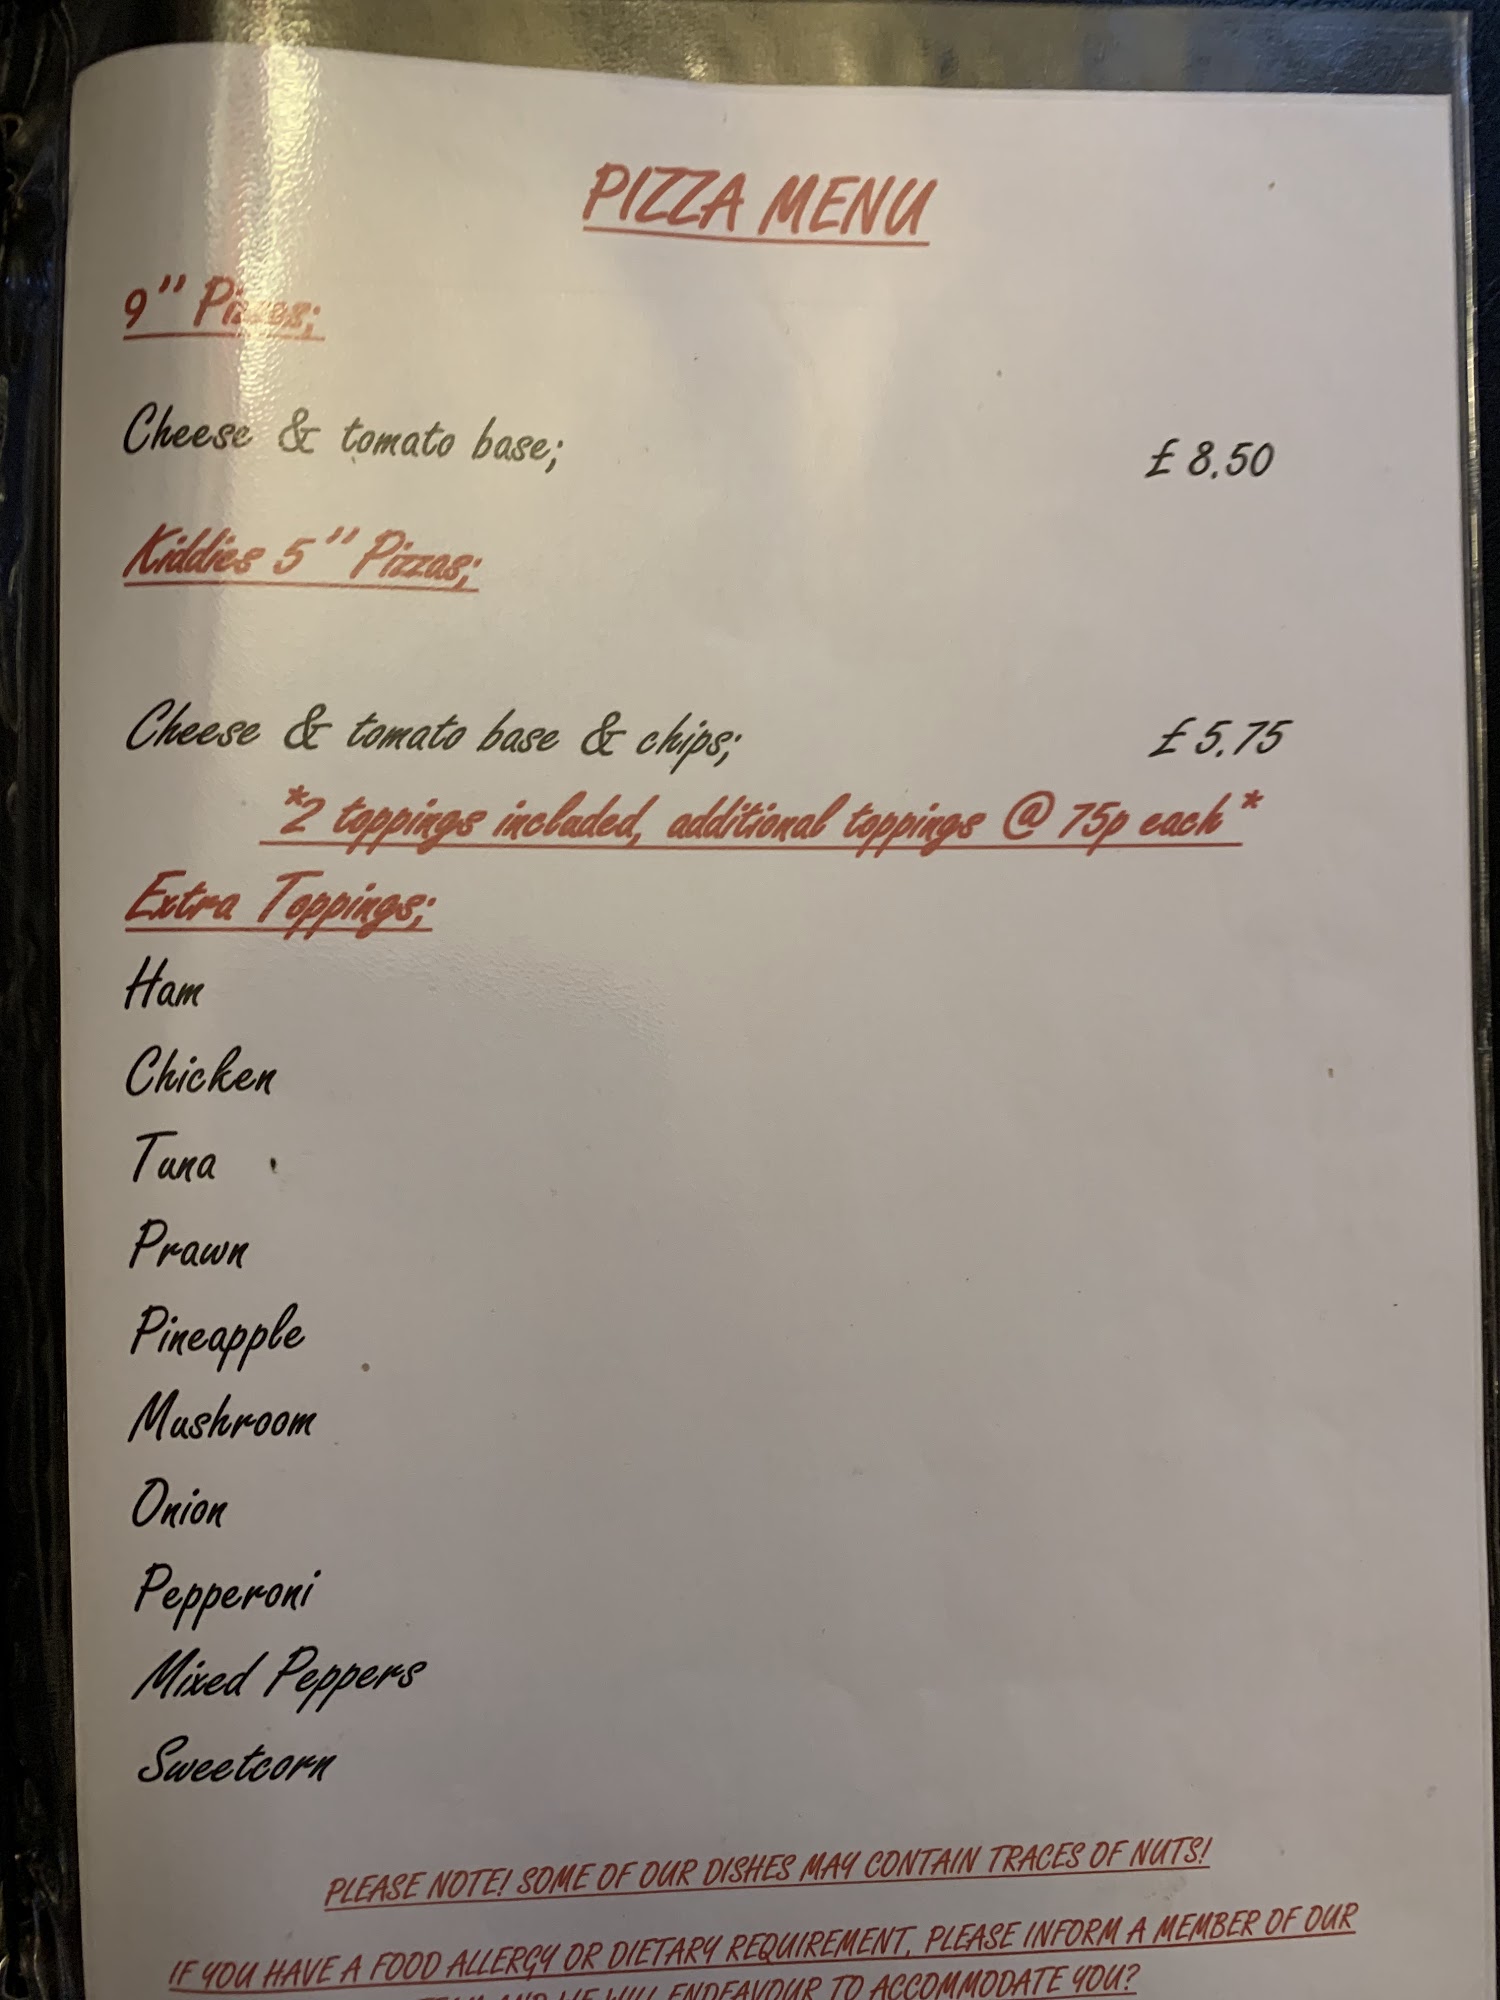 PIZZA MENU
9" Pizzas;
Cheese & tomato base; £ 8.50
Kiddies 5" Pizzas;
Cheese & tomato base & chips; £ 5.75
*2 toppings included, additional toppings @ 75p each*
Extra Toppings;
Ham
Chicken
Tuna
Prawn
Pineapple
Mushroom
Onion
Pepperoni
Mixed Peppers
Sweetcorn
PLEASE NOTE! SOME OF OUR DISHES MAY CONTAIN TRACES OF NUTS!
IF YOU HAVE A FOOD ALLERGY OR DIETARY REQUIREMENT, PLEASE INFORM A MEMBER OF OUR
AND WE WILL ENDEAVOUR TO ACCOMMODATE YOU?